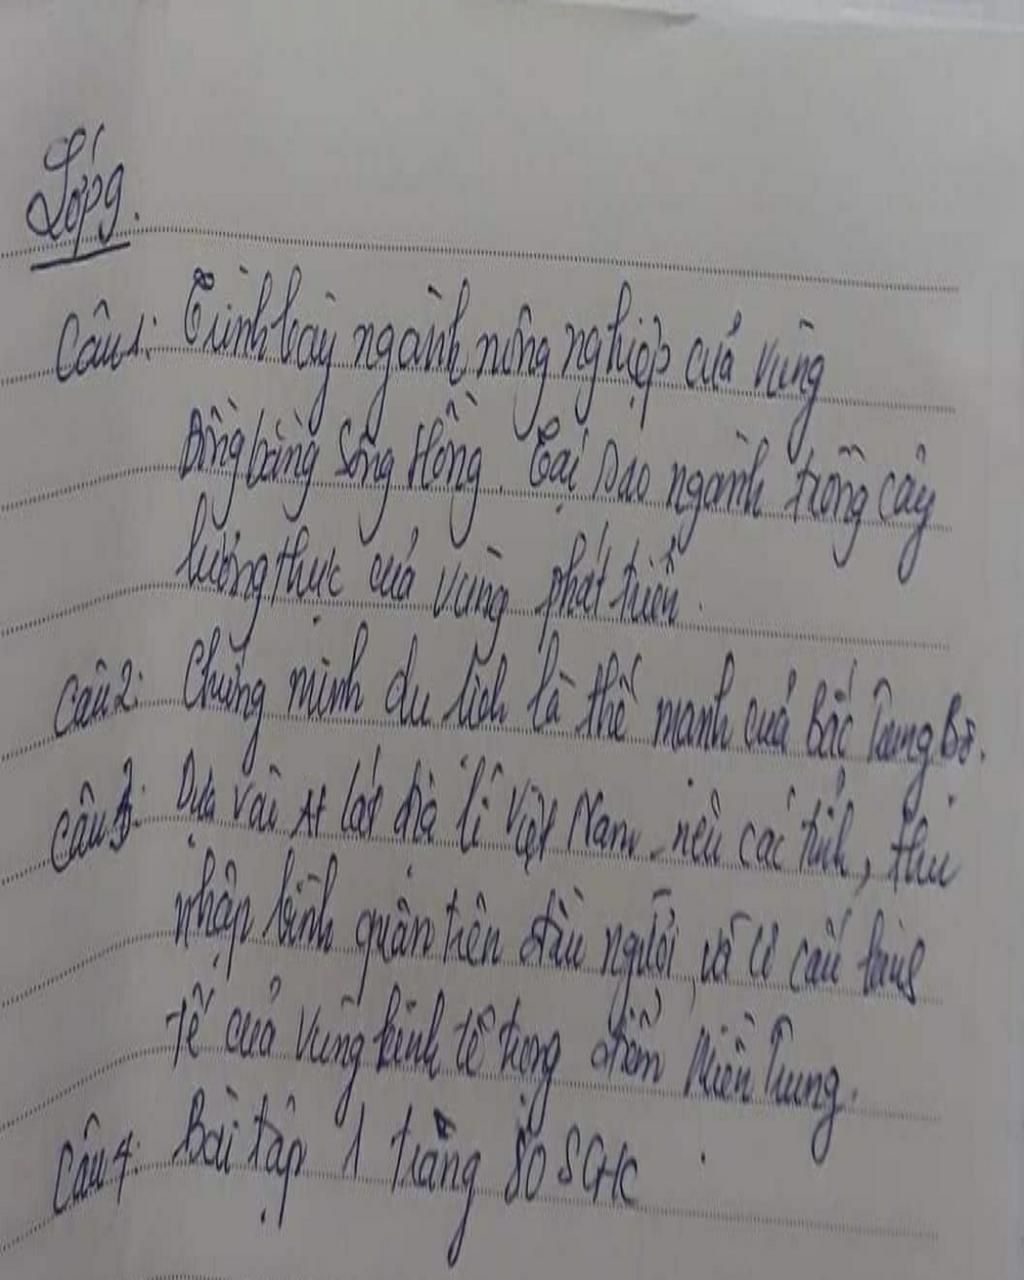 Lớp 9.
Câu 1: Trình bày ngành nông nghiệp của vùng
Đồng bằng Sông Hồng. Tại sao ngành trồng cây
lương thực của vùng phát triển.
Câu 2: Chứng minh du lịch là thế mạnh của Bắc Trung Bộ.
Câu 3: Dựa vào At lát địa lí Việt Nam nêu các tỉnh, thu
nhập bình quân trên đầu người, và cơ cấu
tế của vùng kinh tế trọng điểm Miền Trung.
Câu 4: Bài tập 1 trang 80 SGK